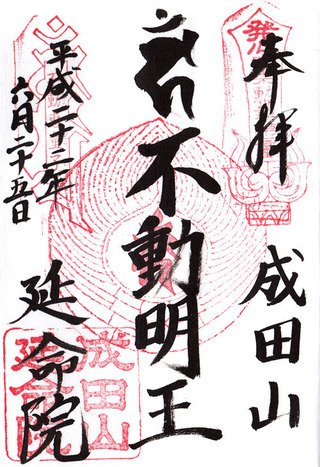 奉拝
成田山
不動明王
平成二十二年
六月二十五日
延命院
成田山
延命院